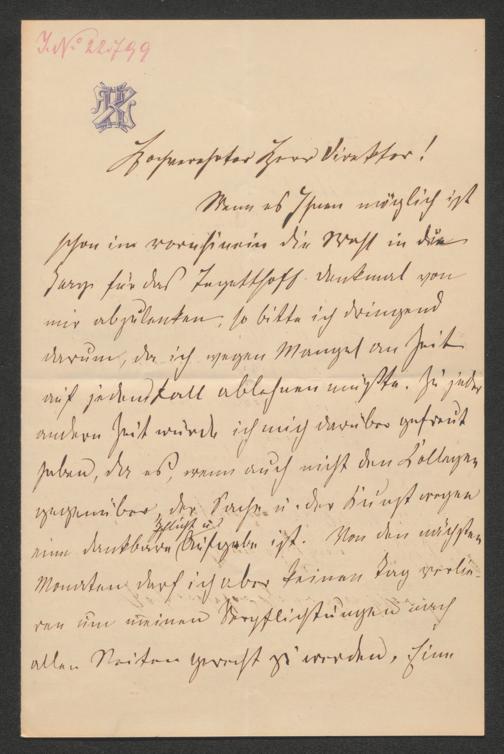 J. N° 22.799
Hochverehrter Herr Direktor!
Wenn es Ihnen möglich ist
schon im vornhinein die Wahl in die
Jury für das Tegetthoff-denkmal von
mir abzulenken, so bitte ich dringend
darum, da ich wegen Mangel an Zeit
auf jeden Fall ablehnen müßte. Zu jeder
andern Zeit würde ich mich darüber gefreut
haben, da es, wenn auch nicht den Collegen
gegenüber, der Sache u. der Kunst wegen
Pflicht u.
eine dankbare Aufgabe ist. Von den nächsten
Monaten darf ich aber keinen Tag verlie-
ren um meinen Verpflichtungen nach
allen Seiten gerecht zu werden.